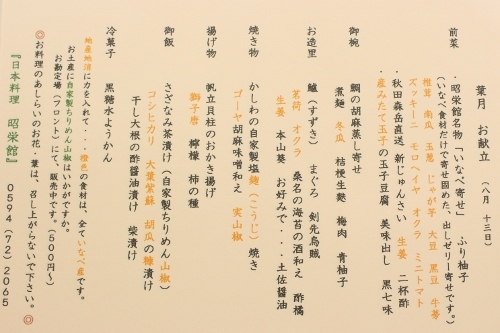 葉月　お献立　（八月　十三日）
前菜　・昭栄館名物「いなべ寄せ」　ふり柚子
（いなべ食材だけで寄せ固めた、出しゼリー寄せです。）
椎茸　南瓜　玉葱　じゃが芋　大豆　黒豆　牛蒡
ズッキーニ　モロヘイヤ　オクラ　ミニトマト
・秋田森岳直送　新じゅんさい　生姜　二杯酢
・産みたて玉子の玉子豆腐　美味出し　黒七味
御椀　鯛の胡麻蒸し寄せ
煮麺　冬瓜　桔梗生麩　梅肉　青柚子
お造里　鱸（すずき）　まぐろ　剣先烏賊
茗荷　オクラ　桑名の海苔の酒和え　酢橘
生姜　本山葵　お好みで・・・土佐醤油
焼き物　かしわの自家製塩麹（こうじ）焼き
ゴーヤ胡麻味噌和え　実山椒
揚げ物　帆立貝柱のおかき揚げ
獅子唐　檸檬　柿の種
御飯　さざなみ茶漬け（自家製ちりめん山椒）
コシヒカリ　大葉紫蘇　胡瓜の糠漬け
干し大根の酢醤油漬け　柴漬け
冷菓子　黒糖水ようかん
地産地消に力を入れて・・・橙色の食材は、全ていなべ産です。
お土産に自家製ちりめん山椒はいかがですか。
お勘定場（フロント）にて、販売中です。（５００円～）
◎お料理のあしらいのお花・葉は、召し上がらないで下さい。◎
『日本料理　昭栄館』　０５９４（７２）２０６５